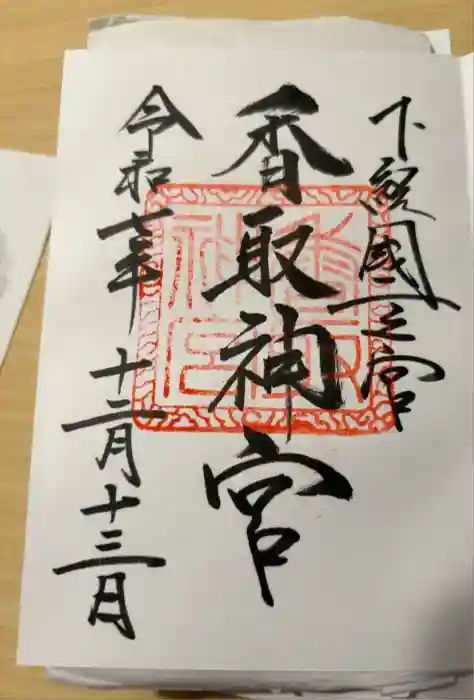 下総國一之宮
香取神宮
令和年
十二月十三日
香取
神宮